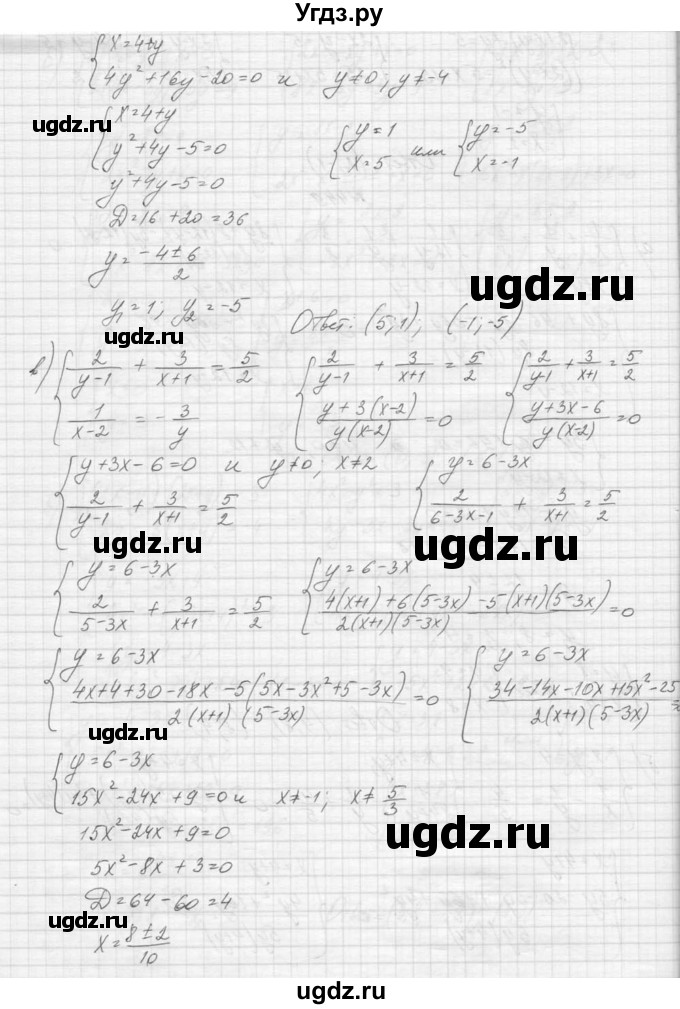 Угдз.ру
{ x=4+y
4y²+16y-20=0 и y≠0, y≠-4
ugdz.ru
{ x=4+y
y²+4y-5=0
{ y=1 x=5 или { y=-5 x=-1
y²+4y-5=0
D=16+20=36
y=(-4±6)/2
ugdz.ru
ugdz.ru
y₁=1; y₂=-5
Ответ: (5;1), (-1;-5)
в) { 2/(y-1) + 3/(x+1) = 5/2 { 2/(y-1) + 3/(x+1) = 5/2 { 2/(y-1) + 3/(x+1) = 5/2
1/(x-2) = -3/y (y+3(x-2))/(y(x-2))=0 (y+3x-6)/(y(x-2))=0
{ y+3x-6=0 и y≠0; x≠2 { y=6-3x
2/(y-1) + 3/(x+1) = 5/2 2/(6-3x-1) + 3/(x+1) = 5/2
ugdz.ru
ugdz.ru
{ y=6-3x { y=6-3x
2/(5-3x) + 3/(x+1) = 5/2 (4(x+1)+6(5-3x)-5(x+1)(5-3x))/(2(x+1)(5-3x))=0
{ y=6-3x { y=6-3x
(4x+4+30-18x-5(5x-3x²+5-3x))/(2(x+1)(5-3x))=0 (34-14x-10x+15x²-25)/(2(x+1)(5-3x))=
ugdz.ru
{ y=6-3x
15x²-24x+9=0 и x≠-1; x≠5/3
15x²-24x+9=0
ugdz.ru
5x²-8x+3=0
D=64-60=4
ugdz.ru
x=(8±2)/10
ugdz.ru